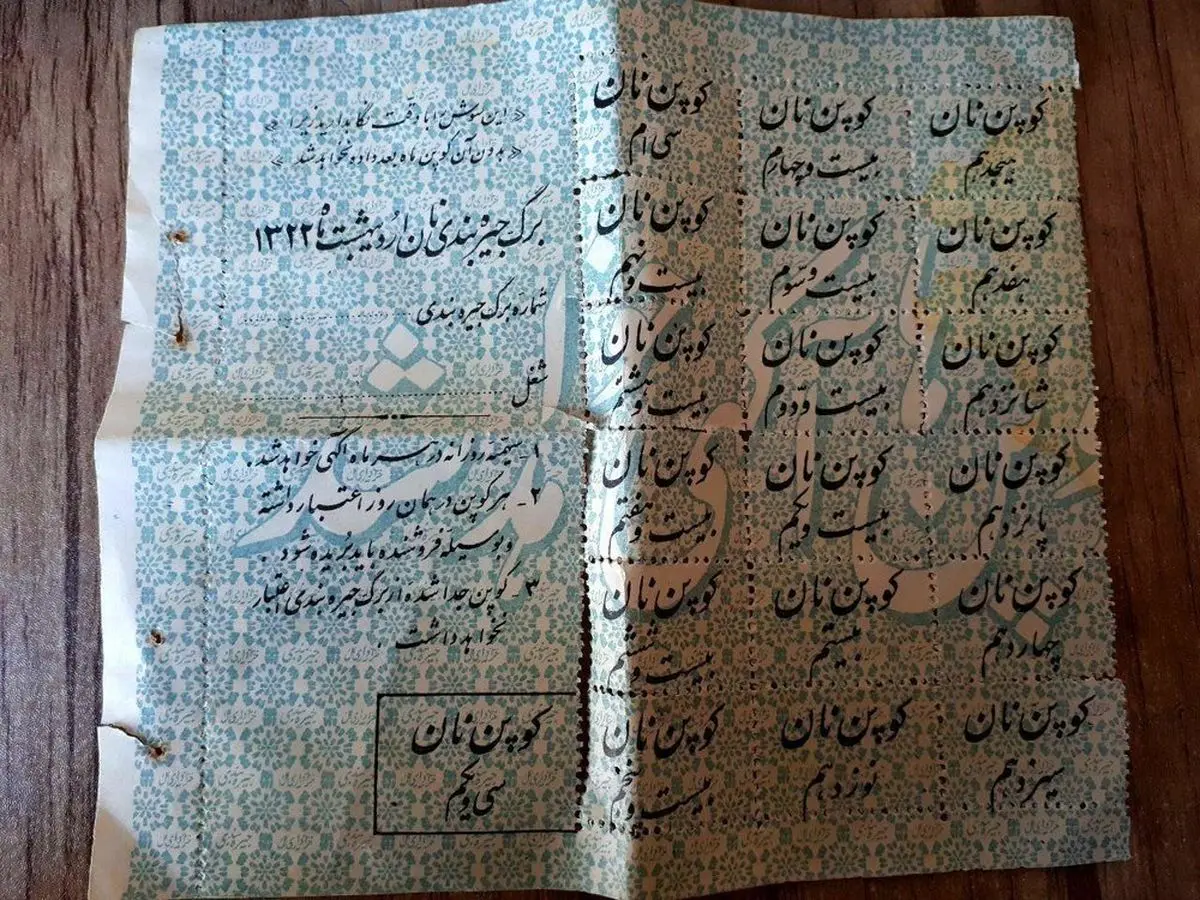 « این سوش را با دقت نگاهدارید زیرا »
« بدون آن کوپن ماه بعد داده نخواهد شد »
برگ جیره بندی نان اردیبهشت ماه ۱۳۲۲
شماره برگ جیره بندی
شغل
۱- سهمیه روزانه در هر ماه آگهی خواهد شد.
۲- هر کوپن در همان روز اعتبار داشته
و بوسیله فروشنده باید بریده شود.
۳- کوپن جدا شده از برگ جیره بندی اعتبار
نخواهد داشت.
کوپن نان
سی و یکم
کوپن نان
سی ام
کوپن نان
بیست و نهم
کوپن نان
بیست و هشتم
کوپن نان
بیست و هفتم
کوپن نان
بیست و ششم
کوپن نان
بیست و پنجم
کوپن نان
بیست و چهارم
کوپن نان
بیست و سوم
کوپن نان
بیست و دوم
کوپن نان
بیست و یکم
کوپن نان
بیستم
کوپن نان
نوزدهم
کوپن نان
هیجدهم
کوپن نان
هفدهم
کوپن نان
شانزدهم
کوپن نان
پانزدهم
کوپن نان
چهاردهم
کوپن نان
سیزدهم